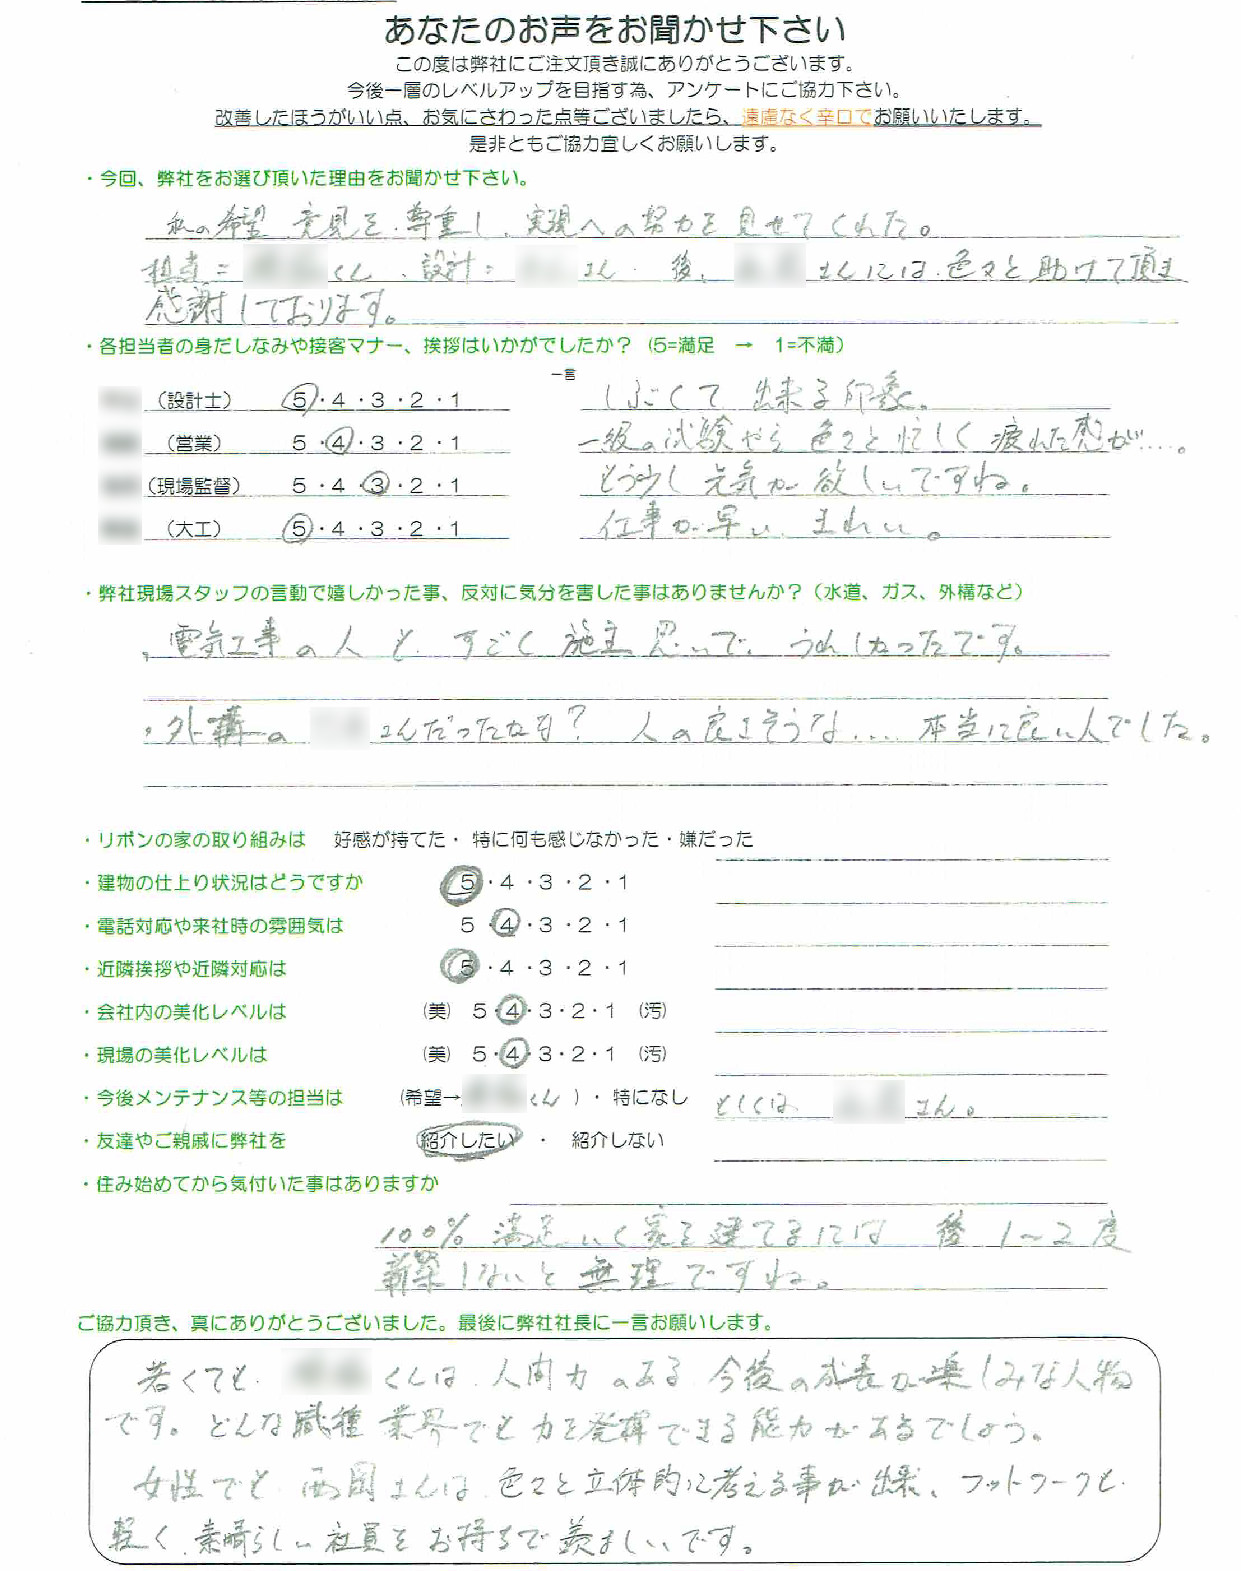 あなたのお声をお聞かせ下さい
この度は弊社にご注文頂き誠にありがとうございます。
今後一層のレベルアップを目指す為、アンケートにご協力下さい。
改善したほうがいい点、お気にさわった点等ございましたら、遠慮なく辛口でお願いいたします。
是非ともご協力宜しくお願いします。
・今回、弊社をお選び頂いた理由をお聞かせ下さい。
私の希望、意見を、尊重し、実現への努力を見せてくれた。
担当＝ くん、設計＝ さん 後、 さんには、色々と助けて頂き
感謝しております。
・各担当者の身だしなみや接客マナー、挨拶はいかがでしたか？（5=満足 → 1=不満）
一言
（設計士） 5・4・3・2・1 しぶくて出来る印象。
（営業） 5・4・3・2・1 一級の試験やら色々と忙しく疲れた感が…。
（現場監督） 5・4・3・2・1 もう少し元気が欲しいですね。
（大工） 5・4・3・2・1 仕事が早い、きれい。
・弊社現場スタッフの言動で嬉しかった事、反対に気分を害した事はありませんか？（水道、ガス、外構など）
・電気工事の人も すごく施主思いで、うれしかったです。
・外構の さんだったかな？ 人の良さそうな…. 本当に良い人でした。
・リボンの家の取り組みは 好感が持てた・ 特に何も感じなかった・嫌だった
・建物の仕上り状況はどうですか 5・4・3・2・1
・電話対応や来社時の雰囲気は 5・4・3・2・1
・近隣挨拶や近隣対応は 5・4・3・2・1
・会社内の美化レベルは （美） 5・4・3・2・1 （汚）
・現場の美化レベルは （美） 5・4・3・2・1 （汚）
・今後メンテナンス等の担当は （希望→ くん ）・特になし もしくは さん。
・友達やご親戚に弊社を 紹介したい ・ 紹介しない
・住み始めてから気付いた事はありますか
100% 満足いく家を建てるには 後 1〜2度
新築しないと無理ですね。
ご協力頂き、真にありがとうございました。最後に弊社社長に一言お願いします。
若くても、 くんは、人間力のある 今後の成長が楽しみな人物
です。どんな職種 業界でも力を発揮できる能力があるでしょう。
女性でも 西岡さんは、色々と立体的に考える事が出来、フットワークも
軽く、素晴らしい社員をお持ちで羨ましいです。